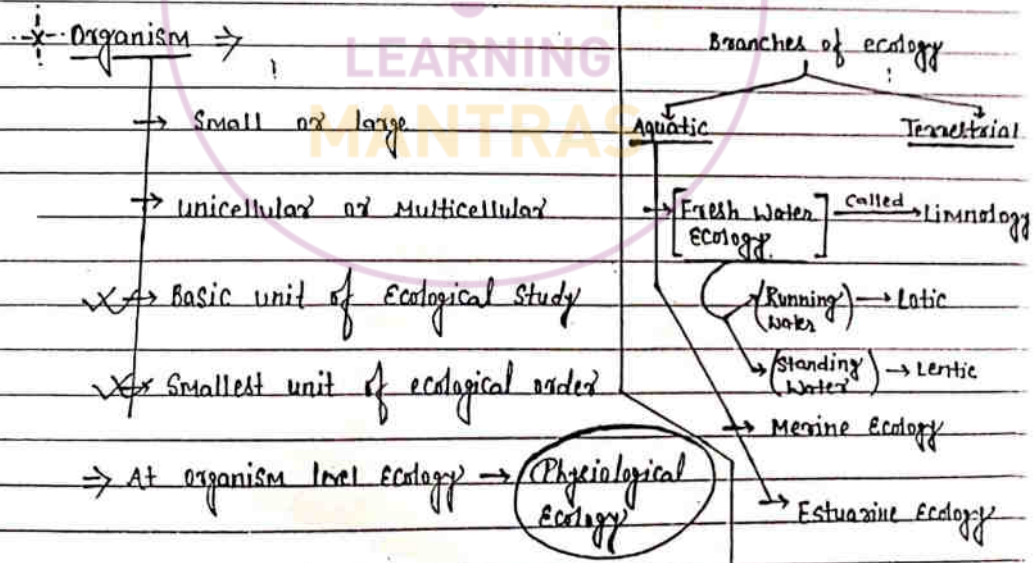 Organism ⇒
LEARNING
MANTRAS
→ Small or large
→ Unicellular or Multicellular
→ Basic unit of Ecological Study
→ Smallest unit of ecological order
⇒ At organism level Ecology → (Physiological
Ecology)
Branches of ecology
Aquatic
Terrestrial
→ [Fresh Water
Ecology.] called → Limnology
→ (Running
Water) → Lotic
→ (Standing
Water) → Lentic
→ Merine Ecology
→ Estuarine Ecology